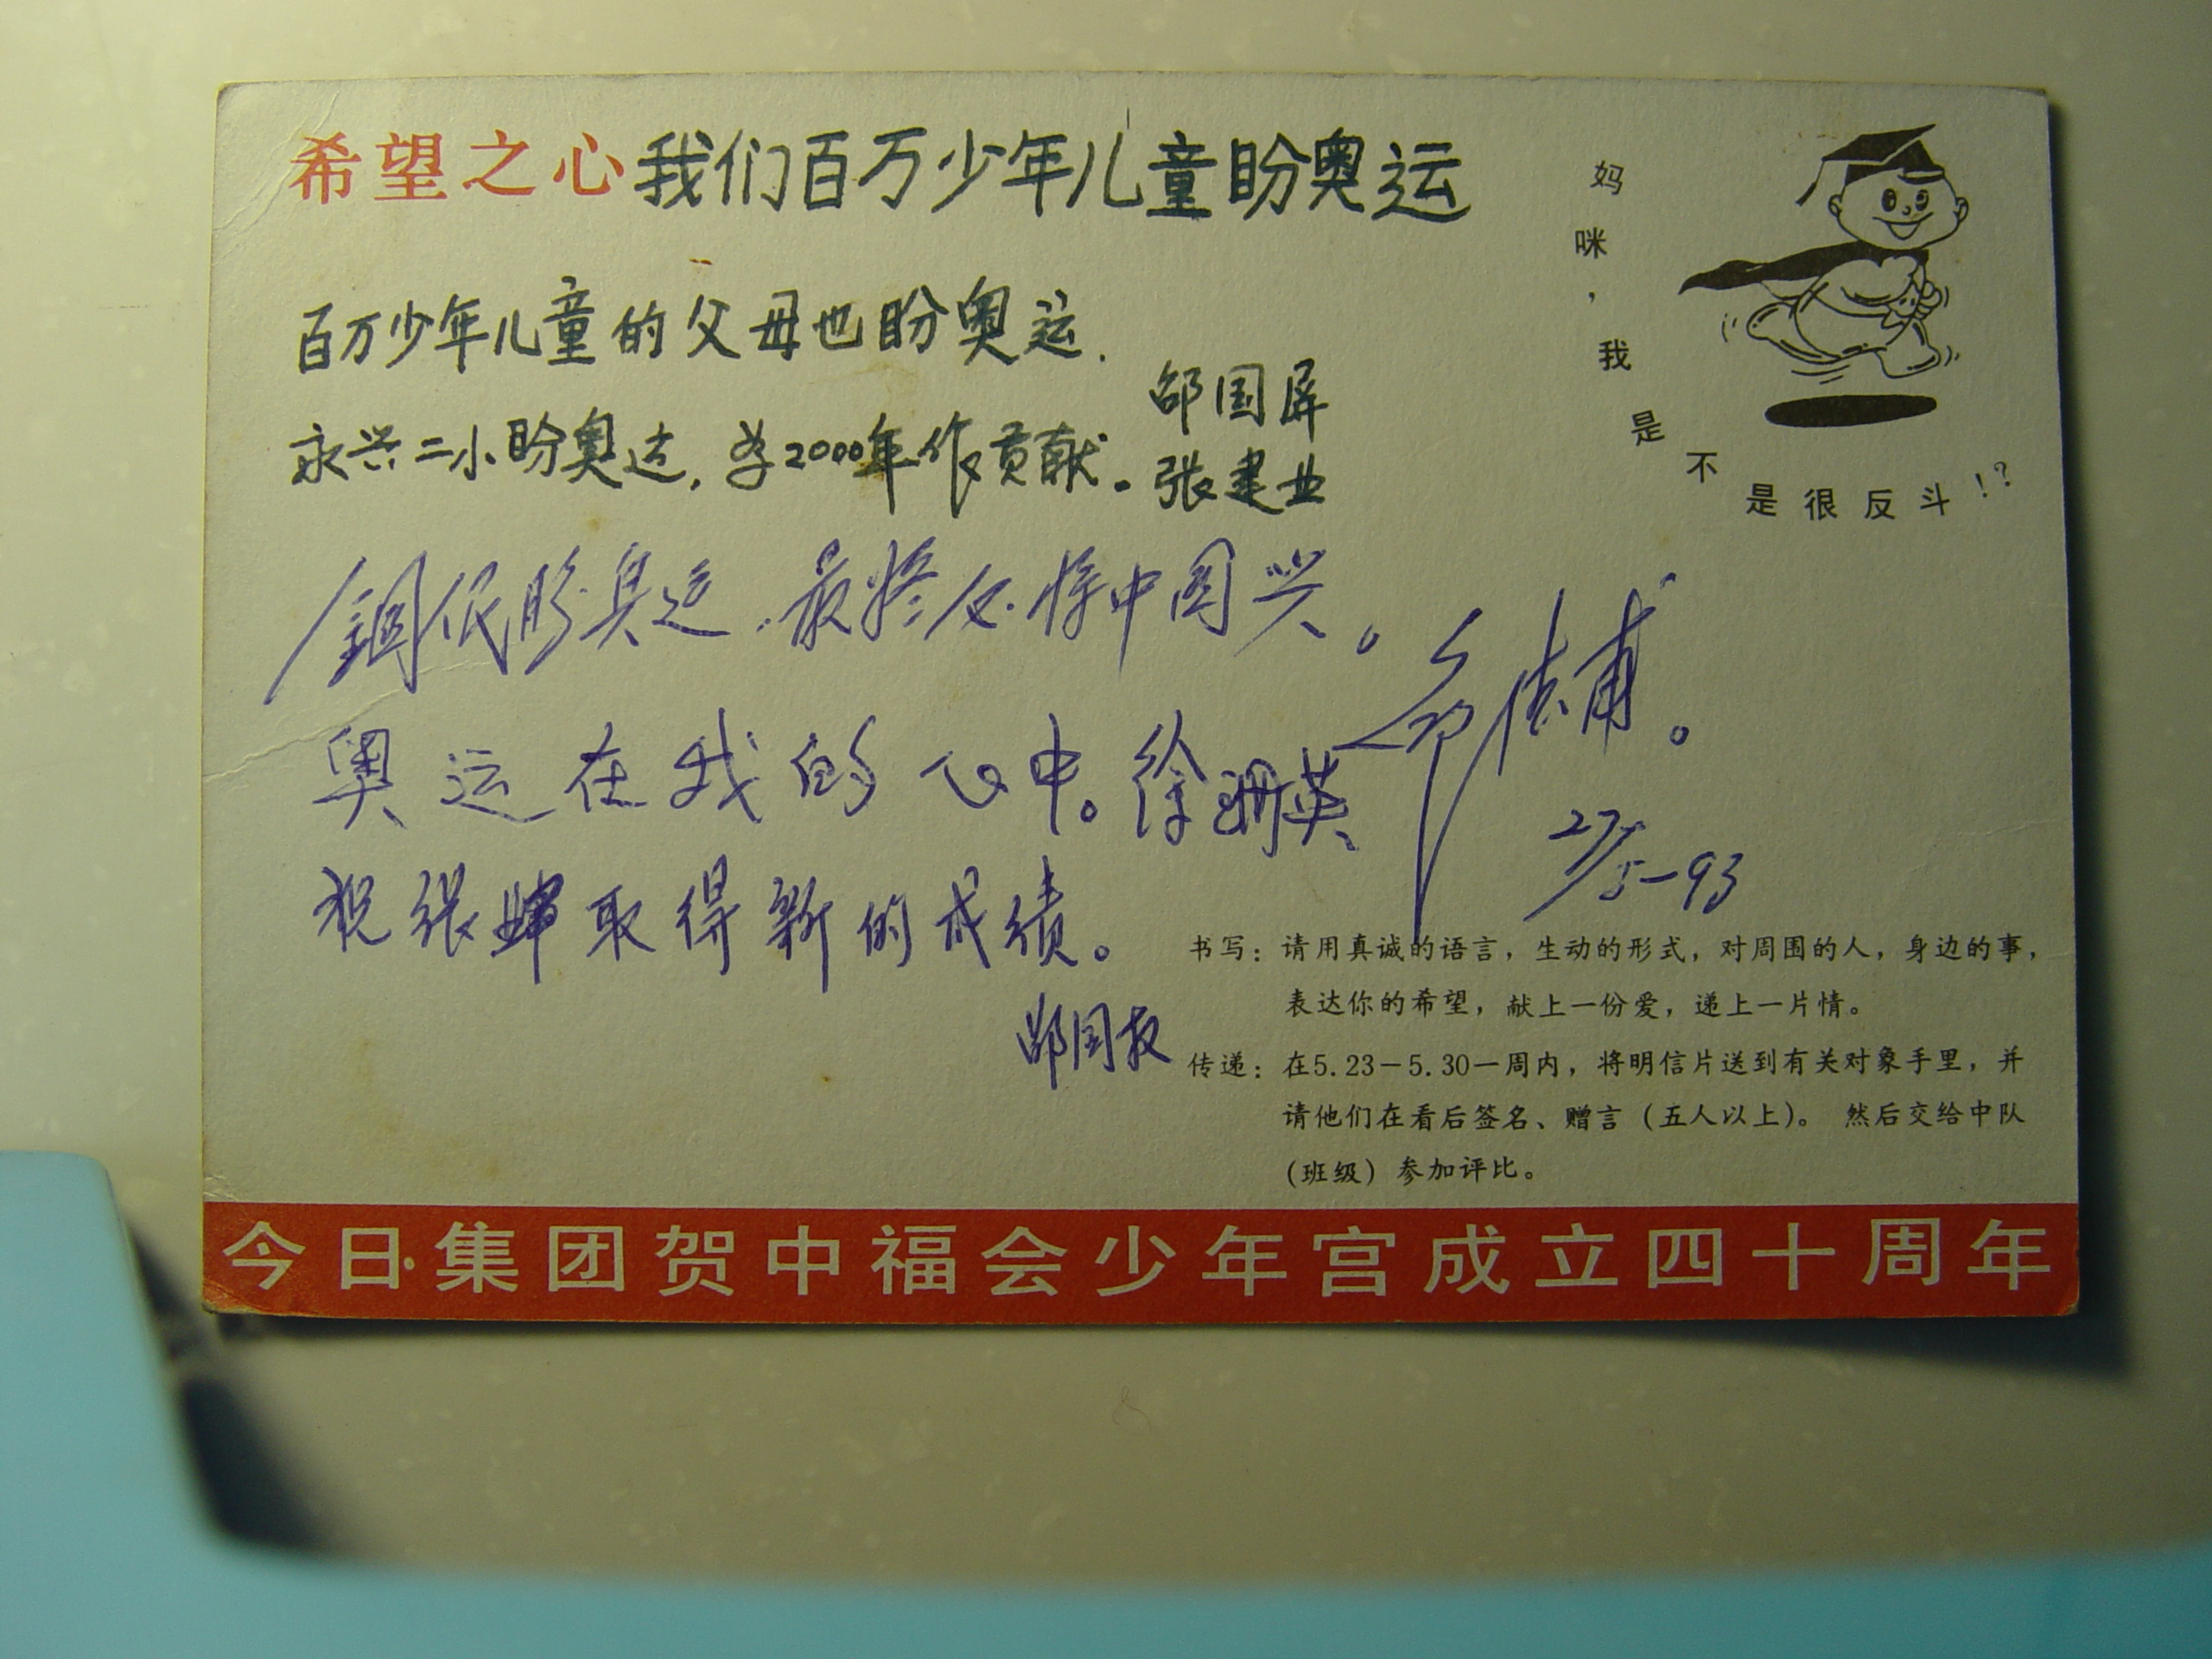 希望之心我们百万少年儿童盼奥运
百万少年儿童的父母也盼奥运.
永兴二小盼奥运,为2000年作贡献。
邵国屏
张建业
盼奥运.最终必将中国兴。
27/5-93
奥运在我的心中。徐珊英
祝张晔取得新的成绩。
邵国权
妈咪,我是不是很反斗!?
书写:请用真诚的语言,生动的形式,对周围的人,身边的事,
表达你的希望,献上一份爱,递上一片情。
传递:在5.23-5.30一周内,将明信片送到有关对象手里,并
请他们在看后签名、赠言(五人以上)。 然后交给中队
(班级)参加评比。
今日集团贺中福会少年宫成立四十周年